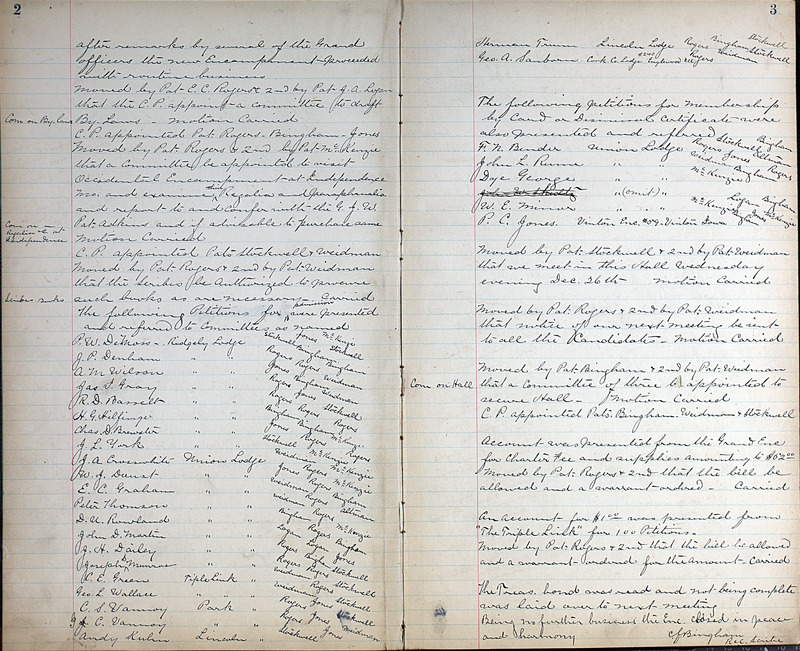 2
after remarks by several of the Grand
officers the new Encampment proceeded
with routine business
Moved by Pat. E. C. Rogers & 2nd by Pat. J. A. Logan
that the C. P. appoint a committee to draft
Com on By-Laws
By-Laws - Motion Carried
C. P. appointed Pat. Rogers - Bingham - Jones
Moved by Pat Rogers & 2nd by Pat. McKenzie
that a Committee be appointed to visit
Occidental Encampment at Independence
Mo. and examine their Regalia and Paraphanalia
and report to and confer with the G. J. W.
Com on Regalia at Independence
Pat. Adkins and if advisable to purchase same
Motion Carried
C. P. appointed Pats Stockwell & Weidman
Moved by Pat. Rogers & 2nd by Pat. Weidman
that the Scribe be Authorized to procure
Scribes books
such books as are necessary - Carried
The following Petitions for admission were presented
and referred to Committees as named
P. W. DeMoss - Ridgely Lodge Jones McKenzie Stockwell
J. P. Denham " " Stockwell Bingham
A. M. Wilson " " Rogers Bingham
Jas S. Gray " " Jones Rogers Weidman
R. D. Bassett " " Rogers Bingham
H. G. Hilfinger " " Rogers Jones Stockwell
Chas. D. Brewster " " Bingham Rogers
J. L. York " " Jones Bingham McKenzie
J. A. Cusenbite Union Lodge Stockwell Rogers
W. J. Duust " " Weidman McKenzie
E. C. Graham " " Jones Rogers McKenzie
Peter Thomson " " Weidman Rogers Bingham
D. U. Rowland " " Weidman Rogers Altman
John D. Martin " " Bingham Rogers McKenzie
J. H. Dailey " " Logan Bingham
Joseph D Munroe " " Rogers Jones
C. E. Green Triple Link " Rogers Stockwell
Geo. L. Wallace " " Weidman Rogers Stockwell
C. S. Vannoy Park " Weidman Jones Stockwell
J. C. Vannoy " " Rogers Jones Stockwell
Andy Kuhn Lincoln " Stockwell Jones Weidman
3
Herman Trumm Lincoln Lodge Rogers Bingham Stockwell
Geo. A. Sanborn Cook Co Lodge Englewood Ill Rogers Weidman Stockwell
The following petitions for Membership
by Card or Dismissal Certificate were
also presented and referred
F. N. Bender Union Lodge Rogers Stockwell Bingham
John L. Runne " " Rogers Jones Altman
Dye George " " Weidman Bingham Rogers
John W. Shultz " (omit) " McKenzie
W. E. Minor " " Logan Bingham
P. C. Jones. Vinton Enc. Vinton Iowa McKenzie Bingham
Moved by Pat. Stockwell & 2nd by Pat. Weidman
that we meet in this Hall Wednesday
evening Dec. 26th Motion Carried
Moved by Pat. Rogers & 2nd by Pat. Weidman
that notice of our next meeting be sent
to all the Candidates - Motion Carried
Moved by Pat. Bingham & 2nd by Pat. Weidman
Com on Hall
that a Committee of three be appointed to
secure Hall - Motion Carried
C. P. appointed Pats. Bingham. Weidman & Stockwell
Account was presented from the Grand Enc
for Charter Fee and supplies amounting to $62.00
Moved by Pat. Rogers & 2nd that the bill be
allowed and a warrant ordered - Carried
An Account for $1.00 was presented from
"The Triple Link" for 100 Petitions -
Moved by Pat Rogers & 2nd that the bill be allowed
and a warrant ordered for the amount - Carried
The Treas. bond was read and not being complete
was laid over to next meeting
Being no further business the Enc. closed in peace
and harmony
C J Bingham
Rec. Scribe